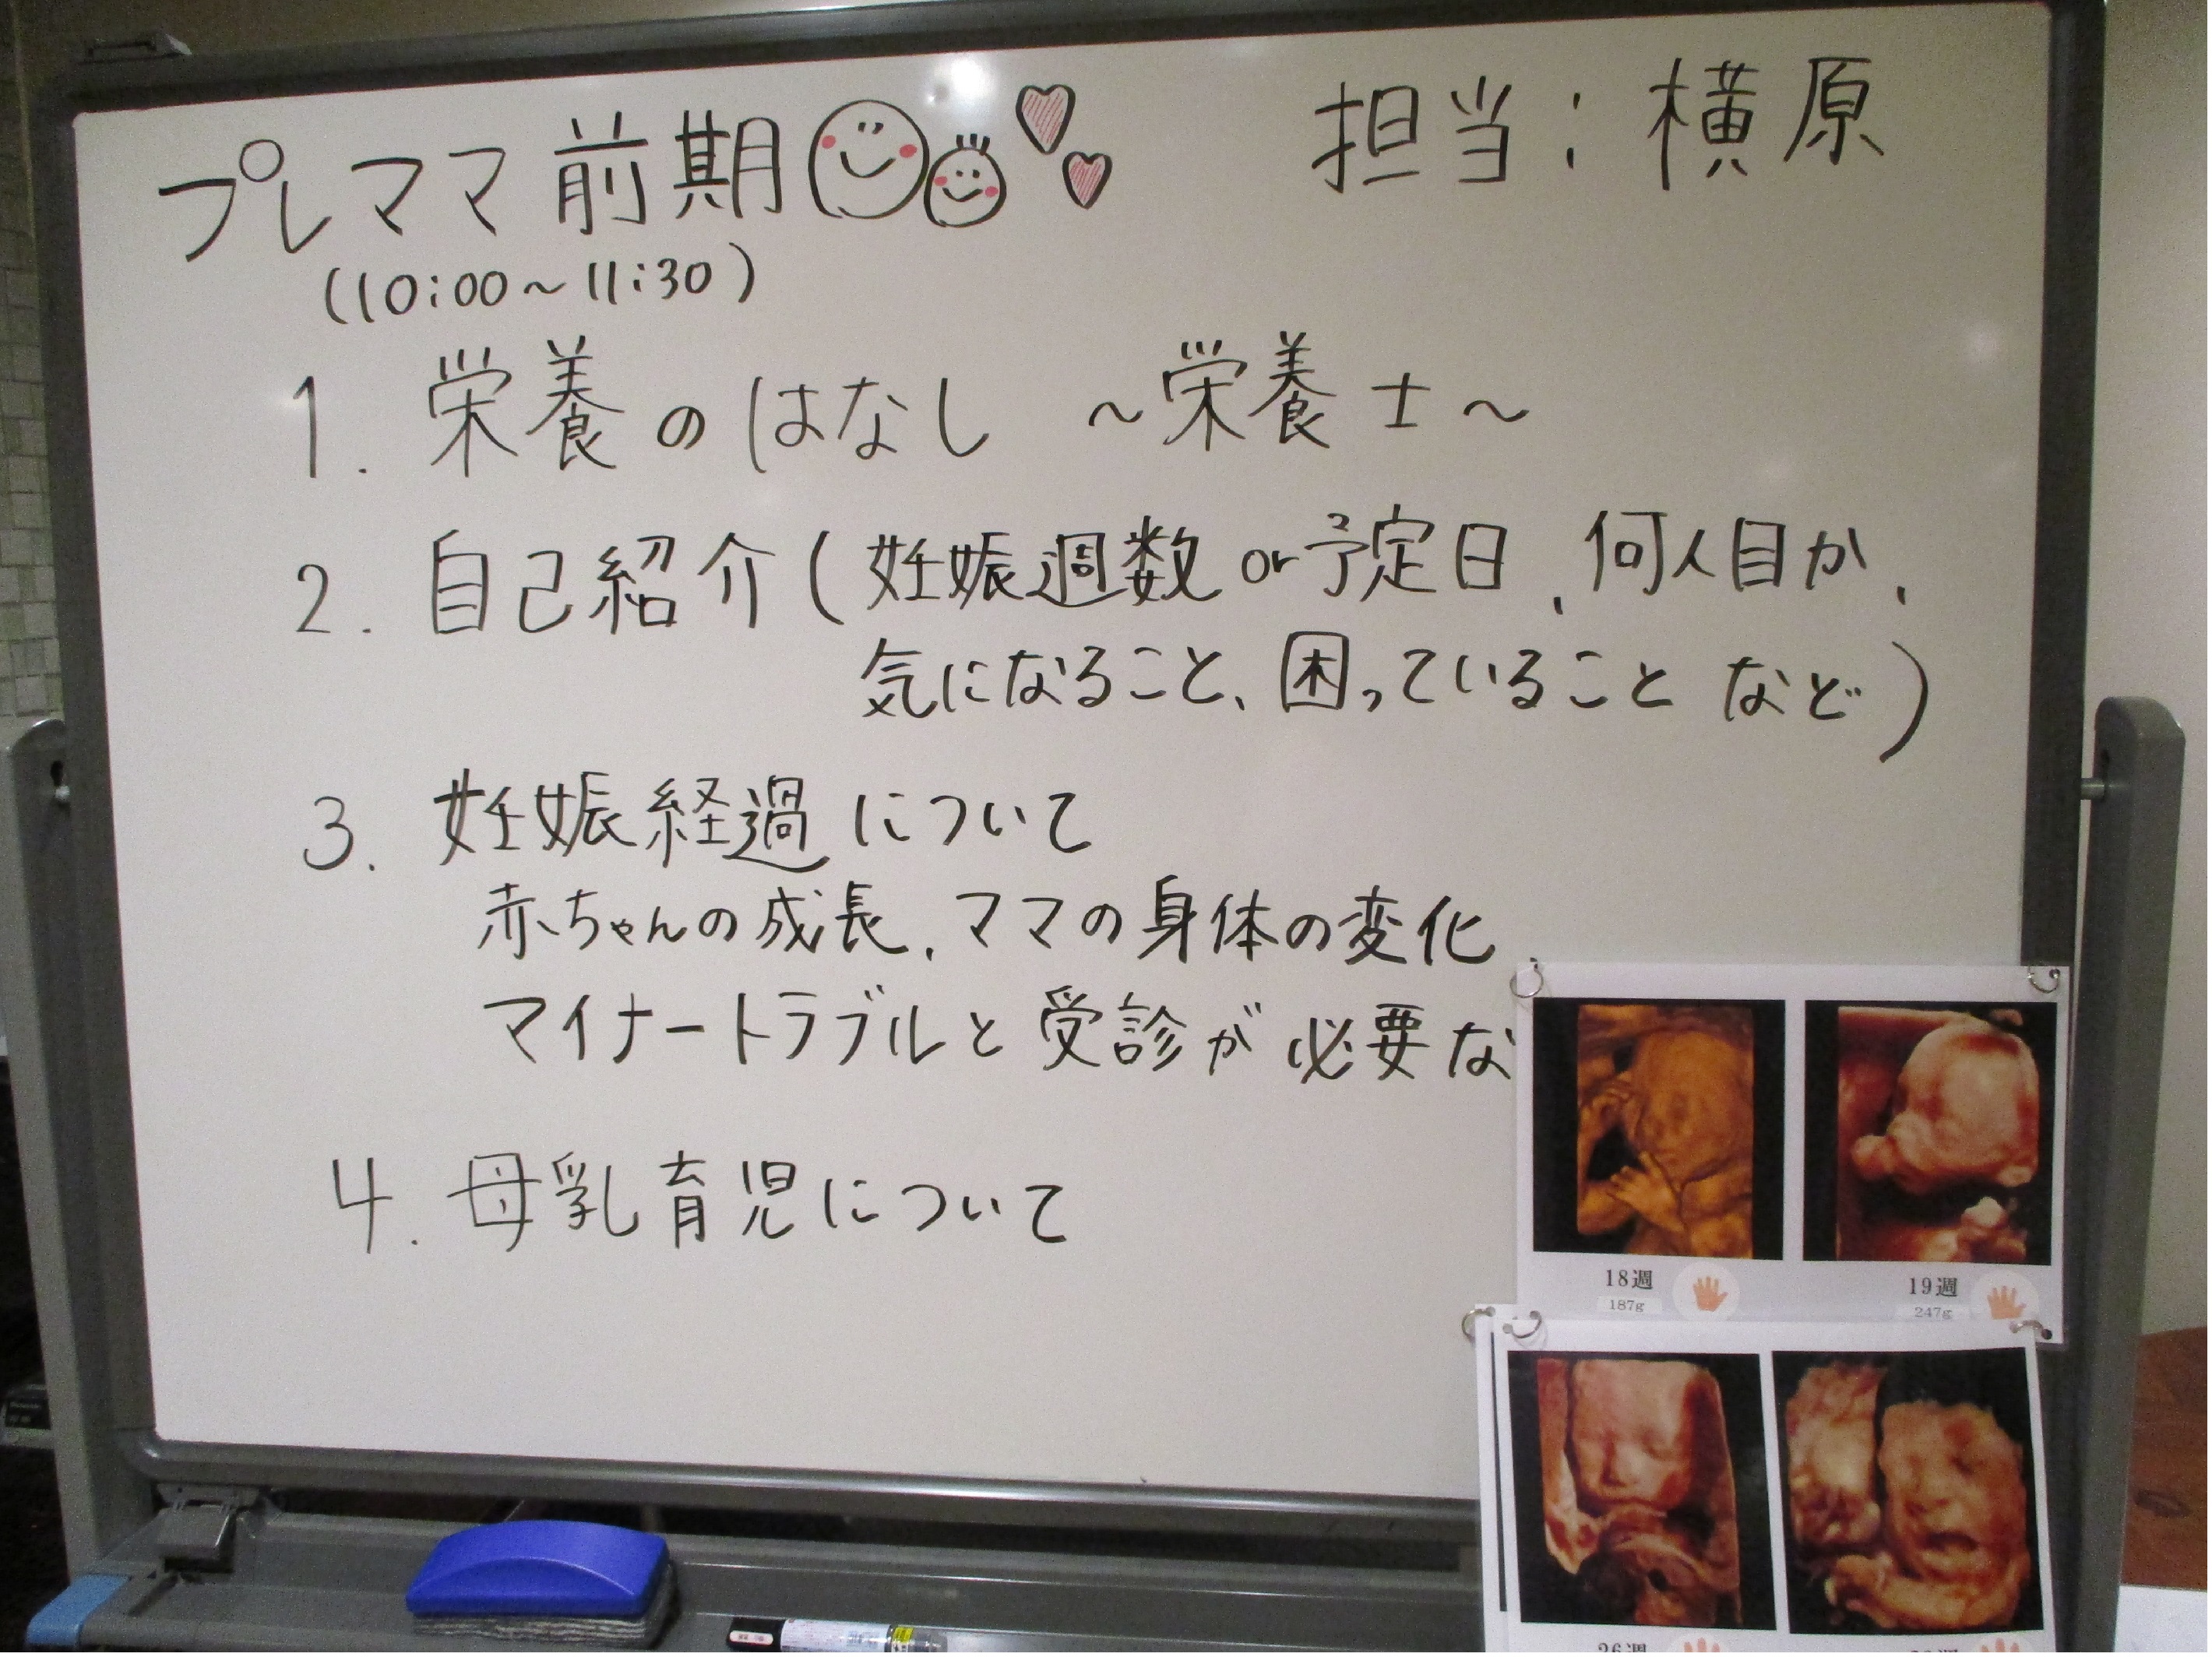 プレママ前期
担当：横原
(10:00～11:30)
1. 栄養のはなし ～栄養士～
2. 自己紹介(妊娠週数or予定日、何人目か、
気になること、困っていること など)
3. 妊娠経過について
赤ちゃんの成長、ママの身体の変化、
マイナートラブルと受診が必要な
4. 母乳育児について
18週
187g
19週
247g